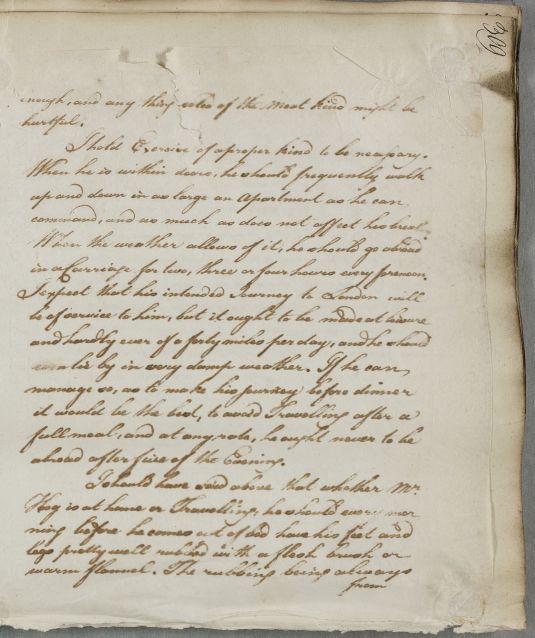 309
enough, and any thing else of the Meat kind might be
hurtful.
I hold Exercise of a proper kind to be necessary.
When he is within doors, he should frequently walk
up and down in as large an Apartment as he can
command, and as much as does not affect his breath.
When the weather allows of it, he should go abroad
in a Carriage for two, three or four hours every forenoon.
I expect that his intended Journey to London will
be of service to him, but it ought to be made at leisure
and hardly ever of a forty miles per day, and he should
even lie by in very damp weather. If he can
manage so, as to make his Journey before dinner
it would be the best, to avoid Travelling after a
full meal, and at any rate, he ought never to be
abroad after five of the Evening.
I should have said above that whether Mr.
Hog is at home or Travelling, he should every mor
ning before he comes out of bed have his feet and
legs pretty well rubbed with a flesh brush or
warm flannel. The rubbing being always
from